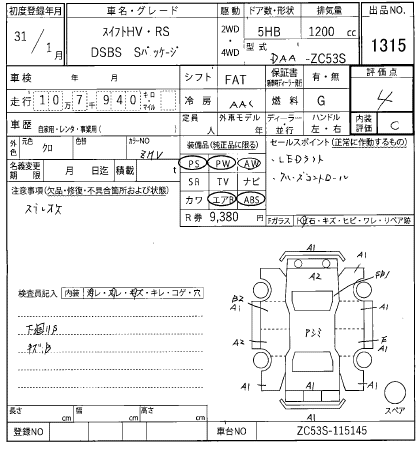 初度登録年月
車名・グレード
駆動
ドア数・形状
排気量
出品NO.
31 / 1月
スイフトHV・RS
DSBS Sパッケージ
2WD
・
4WD
5HB
1200 cc
型式
DAA -ZC53S
1315
車検 年 月
シフト FAT
保証書
有・無
評価点
4
走行 10万7940 キロ・マイル
冷房 AAC
燃料 G
車歴 自家用・レンタ・事業用( )
定員 人
外車モデル 年
ディーラー・並行
ハンドル 左・右
内装評価 C
外色 元色 クロ
カラーNO ZMV
装備品(純正品に限る)
セールスポイント(正常に作動するもの)
名義変更期限 月 日迄
積載 t
PS PW AW
・LEDライト
注意事項(欠品・修復・不具合箇所および状態)
SR TV ナビ
・クルーズコントロール
カワ エアB ABS
R券 9,380 円
Fガラス トビ石・キズ・ヒビ・ワレ・リペア跡
検査員記入 内装 汚レ・スレ・キズ・キレ・コゲ・穴
下廻りサビ
A1
A1
A2
A1
B2
A1
A2
E
A1
A1
A1
A1
スペア
長さ cm
幅 cm
高さ cm
登録NO
車台NO
ZC53S-115145